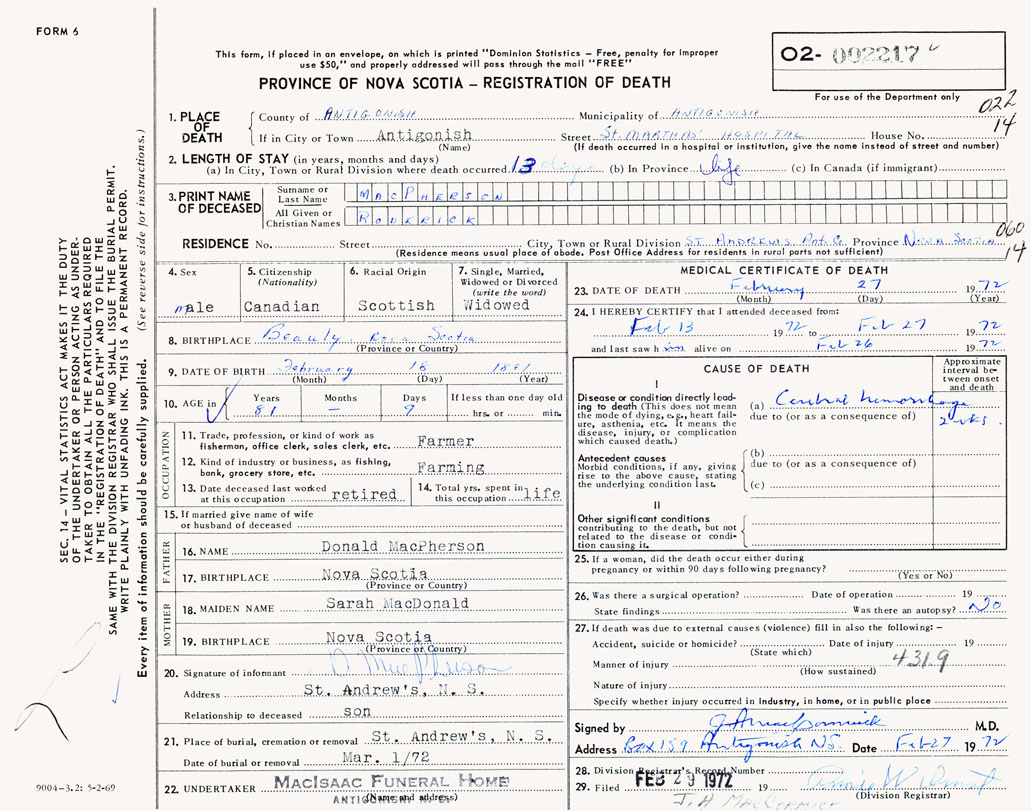 FORM 6
This form, if placed in an envelope, on which is printed "Dominion Statistics – Free, penalty for improper
use $50," and properly addressed will pass through the mail "FREE"
PROVINCE OF NOVA SCOTIA – REGISTRATION OF DEATH
O2- 002217
For use of the Department only
022
14
1. PLACE OF DEATH
County of ANTIGONISH Municipality of ANTIGONISH
If in City or Town Antigonish Street St. MARTHAS' HOSPITAL House No.
(Name) (If death occurred in a hospital or institution, give the name instead of street and number)
2. LENGTH OF STAY (in years, months and days)
(a) In City, Town or Rural Division where death occurred 13 days (b) In Province Life (c) In Canada (if immigrant)
3. PRINT NAME OF DECEASED
Surname or Last Name MACPHERSON
All Given or Christian Names RODERICK
060
14
RESIDENCE No. Street City, Town or Rural Division ST ANDREWS Ant. Co. Province NOVA SCOTIA
(Residence means usual place of abode. Post Office Address for residents in rural parts not sufficient)
4. Sex male
5. Citizenship (Nationality) Canadian
6. Racial Origin Scottish
7. Single, Married, Widowed or Divorced (write the word) Widowed
8. BIRTHPLACE Beauly Nova Scotia
(Province or Country)
9. DATE OF BIRTH February 18 1891
(Month) (Day) (Year)
10. AGE in Years Months Days If less than one day old
81 — 9 hrs. or min.
OCCUPATION
11. Trade, profession, or kind of work as fisherman, office clerk, sales clerk, etc. Farmer
12. Kind of industry or business, as fishing, bank, grocery store, etc. Farming
13. Date deceased last worked at this occupation retired
14. Total yrs. spent in this occupation life
15. If married give name of wife or husband of deceased
FATHER
16. NAME Donald MacPherson
17. BIRTHPLACE Nova Scotia
(Province or Country)
MOTHER
18. MAIDEN NAME Sarah MacDonald
19. BIRTHPLACE Nova Scotia
(Province or Country)
20. Signature of informant D MacPherson
Address St. Andrew's, N. S.
Relationship to deceased son
21. Place of burial, cremation or removal St. Andrew's, N. S.
Date of burial or removal Mar. 1/72
22. UNDERTAKER MACISAAC FUNERAL HOME
(Name and address)
MEDICAL CERTIFICATE OF DEATH
23. DATE OF DEATH February 27 1972
(Month) (Day) (Year)
24. I HEREBY CERTIFY that I attended deceased from:
Feb 13 1972 to Feb 27 1972
and last saw him alive on Feb 26 1972
CAUSE OF DEATH
Approximate interval between onset and death
I
Disease or condition directly leading to death (This does not mean the mode of dying, e.g., heart failure, asthenia, etc. it means the disease, injury, or complication which caused death.)
(a) Cerebral hemorrhage
due to (or as a consequence of) 2 wks.
Antecedent causes
Morbid conditions, if any, giving rise to the above cause, stating the underlying condition last.
(b)
due to (or as a consequence of)
(c)
II
Other significant conditions
contributing to the death, but not related to the disease or condition causing it.
25. If a woman, did the death occur either during pregnancy or within 90 days following pregnancy?
(Yes or No)
26. Was there a surgical operation? Date of operation 19
State findings Was there an autopsy? No
27. If death was due to external causes (violence) fill in also the following: –
Accident, suicide or homicide? Date of injury 19
(State which)
Manner of injury 4319
(How sustained)
Nature of injury
Specify whether injury occurred in industry, in home, or in public place
Signed by J A MacCormick M.D.
Address Box 159 Antigonish NS. Date Feb 27 1972
28. Division Registrar's Record Number
29. Filed FEB 29 1972 19
(Division Registrar)
J. A MACCORMICK
SEC. 14 – VITAL STATISTICS ACT MAKES IT THE DUTY
OF THE UNDERTAKER OR PERSON ACTING AS UNDERTAKER
TO OBTAIN ALL THE PARTICULARS REQUIRED
IN THE "REGISTRATION OF DEATH" AND TO FILE THE
SAME WITH THE DIVISION REGISTRAR WHO SHALL ISSUE THE BURIAL PERMIT.
WRITE PLAINLY WITH UNFADING INK. THIS IS A PERMANENT RECORD.
Every item of information should be carefully supplied. (See reverse side for instructions.)
9004–3.2: 5-2-69